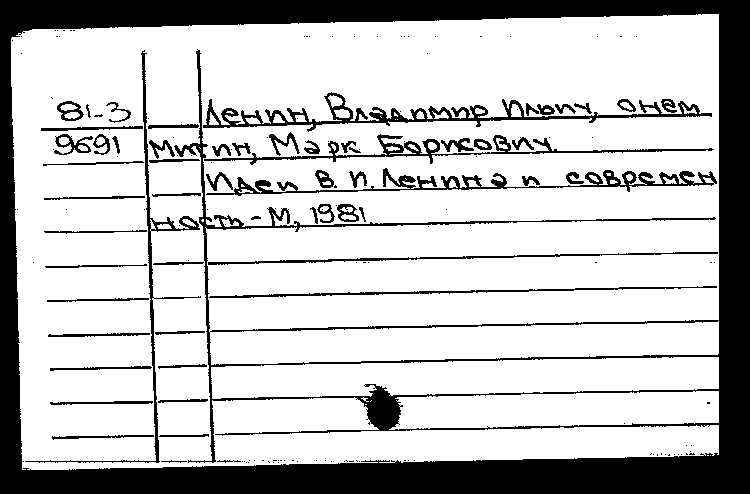 81-3 Ленин, Владимир Ильич, о нем
9691 Митин, Марк Борисович.
Идеи В. И. Ленина и современ
ность - М, 1981.